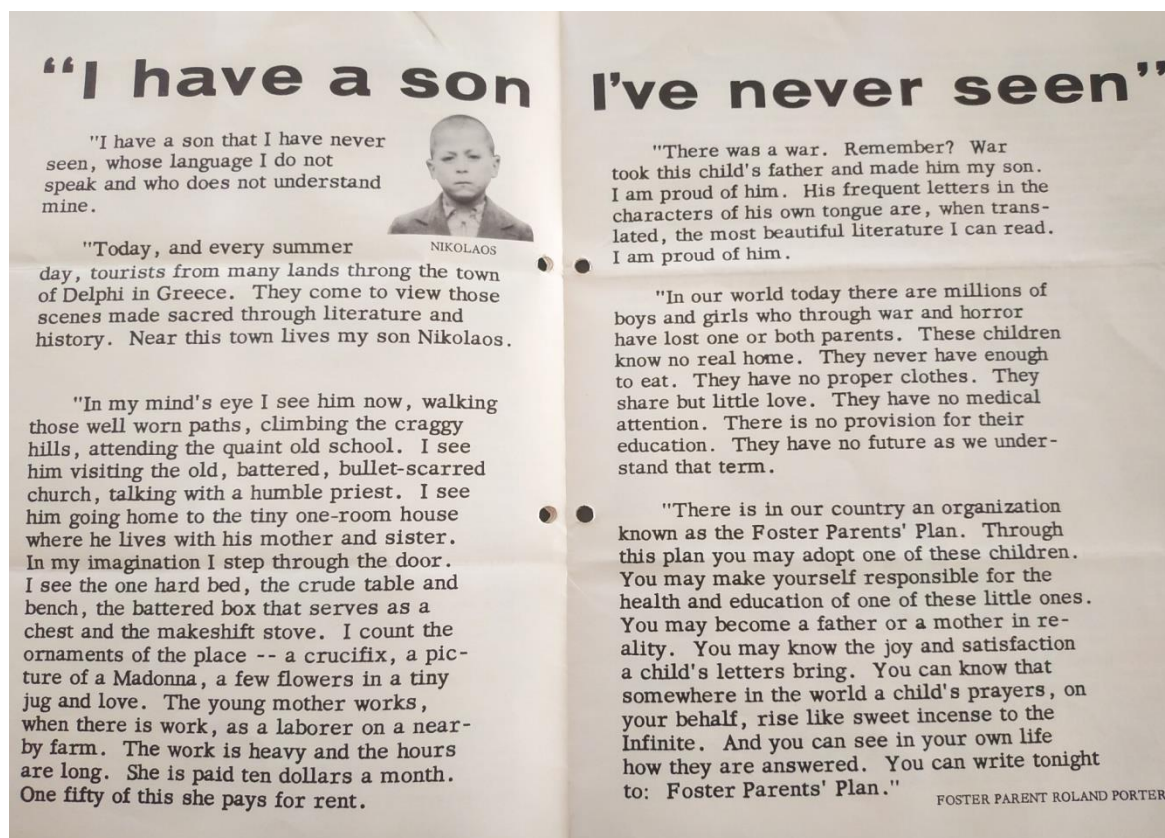 "I have a son I've never seen"
"I have a son that I have never
seen, whose language I do not
speak and who does not understand
mine.
NIKOLAOS
"Today, and every summer
day, tourists from many lands throng the town
of Delphi in Greece. They come to view those
scenes made sacred through literature and
history. Near this town lives my son Nikolaos.
"In my mind's eye I see him now, walking
those well worn paths, climbing the craggy
hills, attending the quaint old school. I see
him visiting the old, battered, bullet-scarred
church, talking with a humble priest. I see
him going home to the tiny one-room house
where he lives with his mother and sister.
In my imagination I step through the door.
I see the one hard bed, the crude table and
bench, the battered box that serves as a
chest and the makeshift stove. I count the
ornaments of the place -- a crucifix, a pic-
ture of a Madonna, a few flowers in a tiny
jug and love. The young mother works,
when there is work, as a laborer on a near-
by farm. The work is heavy and the hours
are long. She is paid ten dollars a month.
One fifty of this she pays for rent.
"There was a war. Remember? War
took this child's father and made him my son.
I am proud of him. His frequent letters in the
characters of his own tongue are, when trans-
lated, the most beautiful literature I can read.
I am proud of him.
"In our world today there are millions of
boys and girls who through war and horror
have lost one or both parents. These children
know no real home. They never have enough
to eat. They have no proper clothes. They
share but little love. They have no medical
attention. There is no provision for their
education. They have no future as we under-
stand that term.
"There is in our country an organization
known as the Foster Parents' Plan. Through
this plan you may adopt one of these children.
You may make yourself responsible for the
health and education of one of these little ones.
You may become a father or a mother in re-
ality. You may know the joy and satisfaction
a child's letters bring. You can know that
somewhere in the world a child's prayers, on
your behalf, rise like sweet incense to the
Infinite. And you can see in your own life
how they are answered. You can write tonight
to: Foster Parents' Plan."
FOSTER PARENT ROLAND PORTER